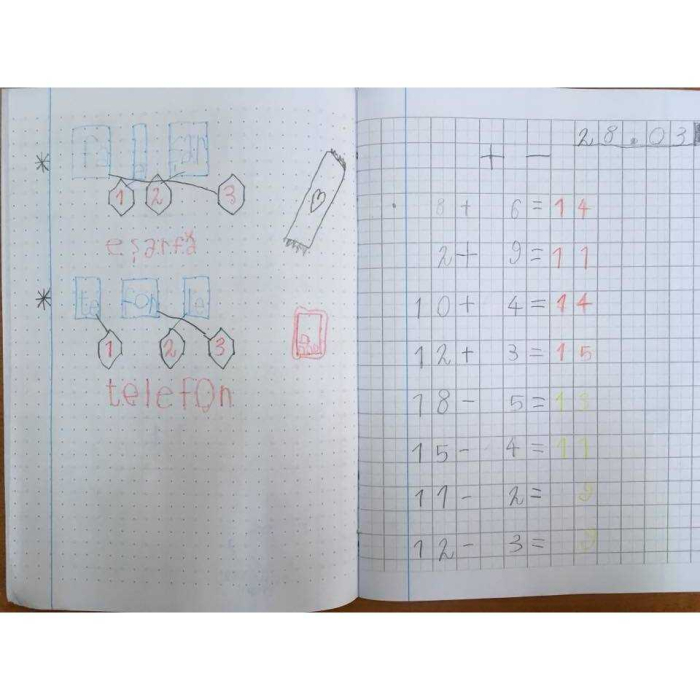 eșarfă
te fon le
1 2 3
telefon
28.03
+ -
8 + 6 = 14
2 + 9 = 11
10 + 4 = 14
12 + 3 = 15
18 - 5 = 13
15 - 4 = 11
11 - 2 = 9
12 - 3 = 9